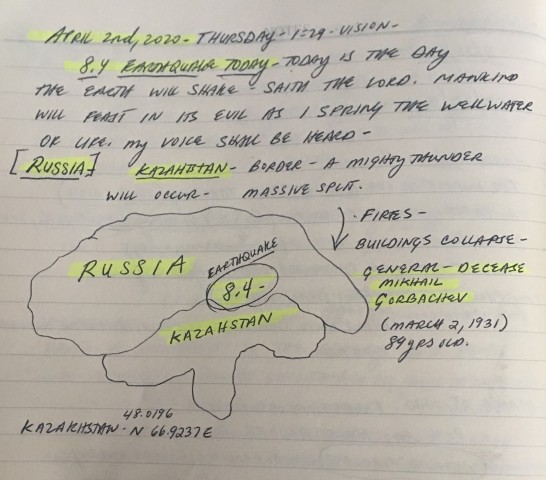 APRIL 2nd, 2020 - THURSDAY - 1:29 - VISION -
8.4 EARTHQUAKE TODAY - TODAY IS THE DAY
THE EARTH WILL SHAKE - SAITH THE LORD. MANKIND
WILL FEAST IN ITS EVIL AS I SPRING THE WELLWATER
OF LIFE. MY VOICE SHALL BE HEARD -
[RUSSIA] KAZAHSTAN - BORDER - A MIGHTY THUNDER
WILL OCCUR - MASSIVE SPLIT.
• FIRES -
BUILDINGS COLLAPSE -
GENERAL - DECEASE
MIKHAIL
GORBACHEV
(MARCH 2, 1931)
89 YRS OLD.
EARTHQUAKE
RUSSIA
8.4 -
KAZAHSTAN
48.0196
KAZAKHSTAN - N 66.9237 E